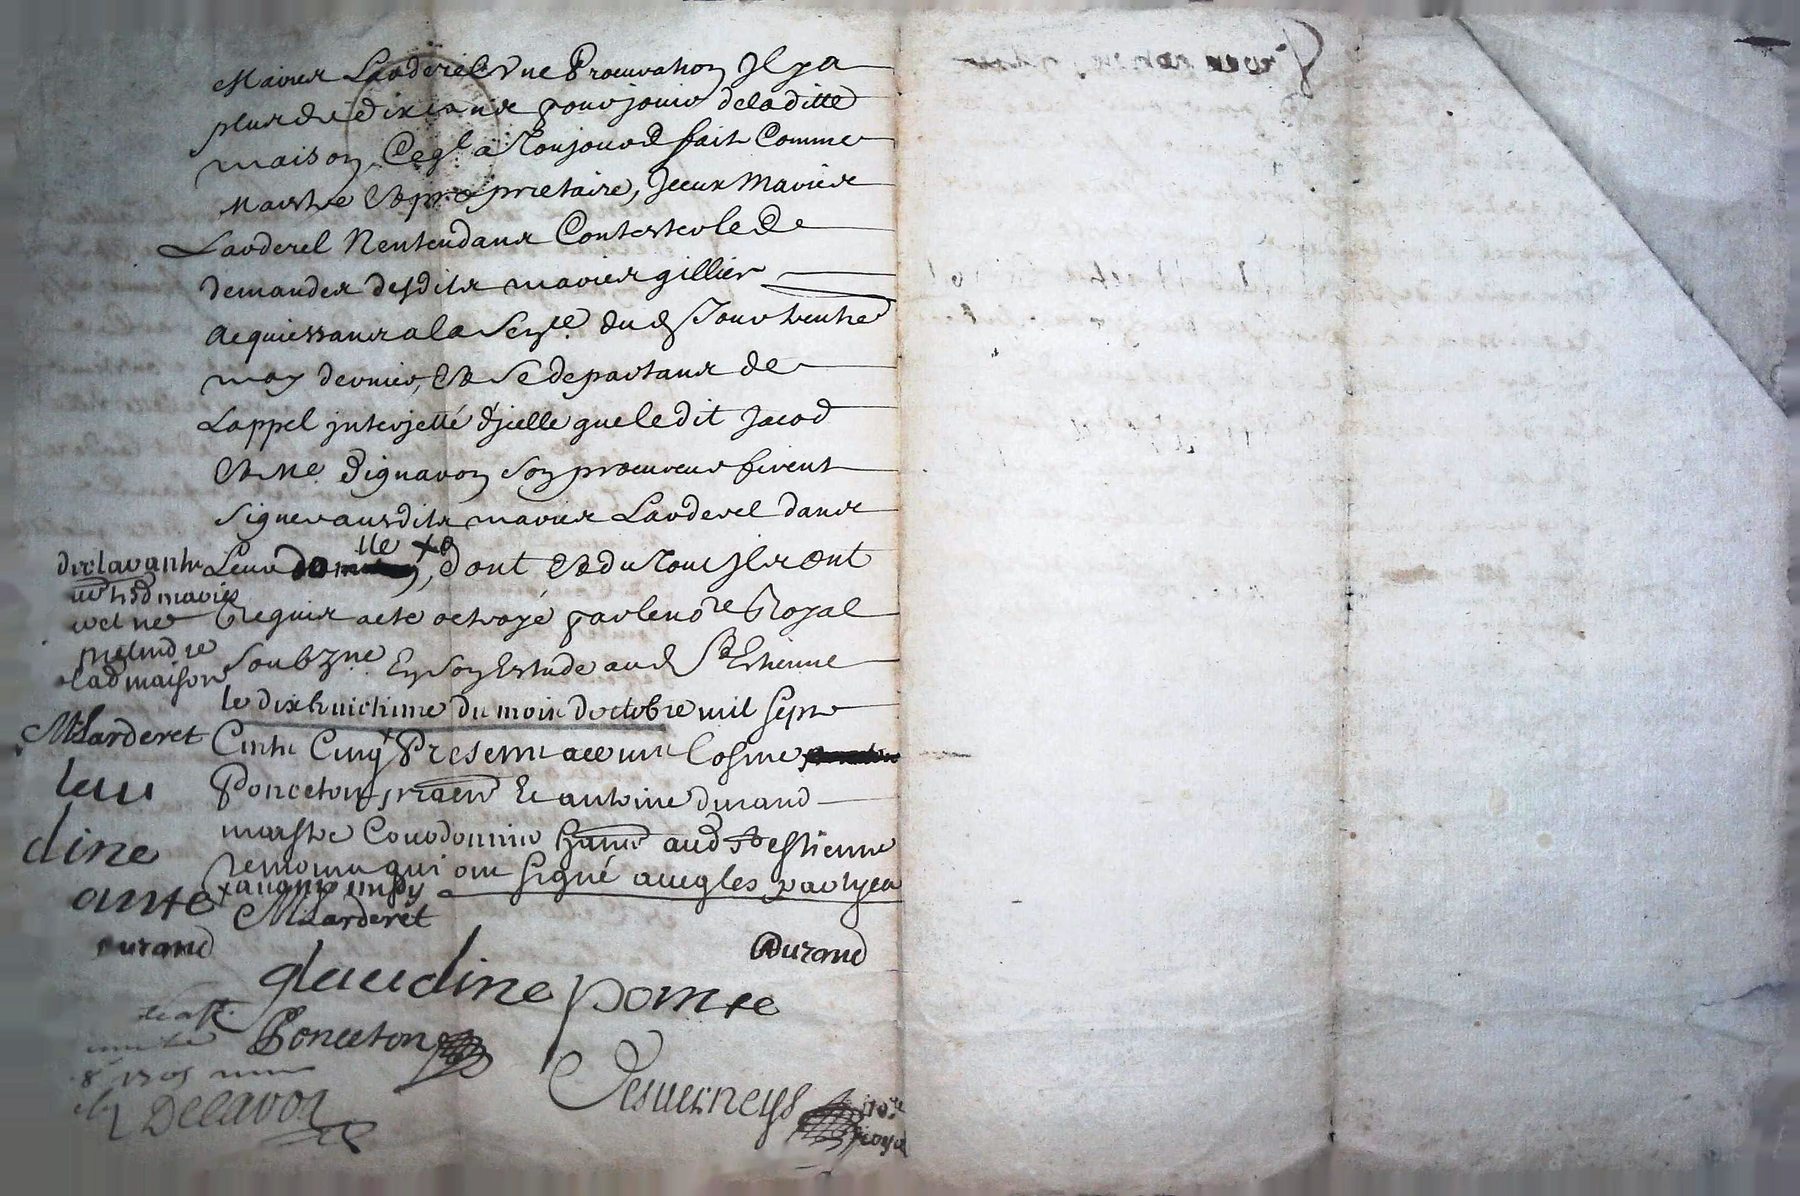 Mariés Larderel Une Procuration Il y a
plus de dix ans pour jouir de laditte
maison Ce ql a Toujours fait Comme
Maistre Et propriettaire, Iceux Mariés
Larderel N'entendans Contester le d
demandes desdits mariés gillier
acquiessans a la Sence dud Jour trente
may dernier, Et Se departans de
Lappel interjetté d'jcelle que le dit Jacod
Et Me Dignaron Son procureur firent
Signer ausdits mariés Larderel dans
Leur lle xe, dont Et du Tout Ils ont
Requis acte octroyé par le nore Royal
Soubzne En Son Estude aud St Etienne
le dixhuictieme du mois doctobre mil sept
Cents Cinq Presents a ce me Cosme
Ponceton praen Et antoine durand
maistre Courdonnier hants aud St estienne
temoins qui ont signé avec les parties
declarants
lesd maries
pretendre
a lad maison
MLarderet
lau
dine
ante
durand
MLarderet
Durand
glaudine pomte
Ponceton
Desverneys nore
royal
8 1705
Delavor